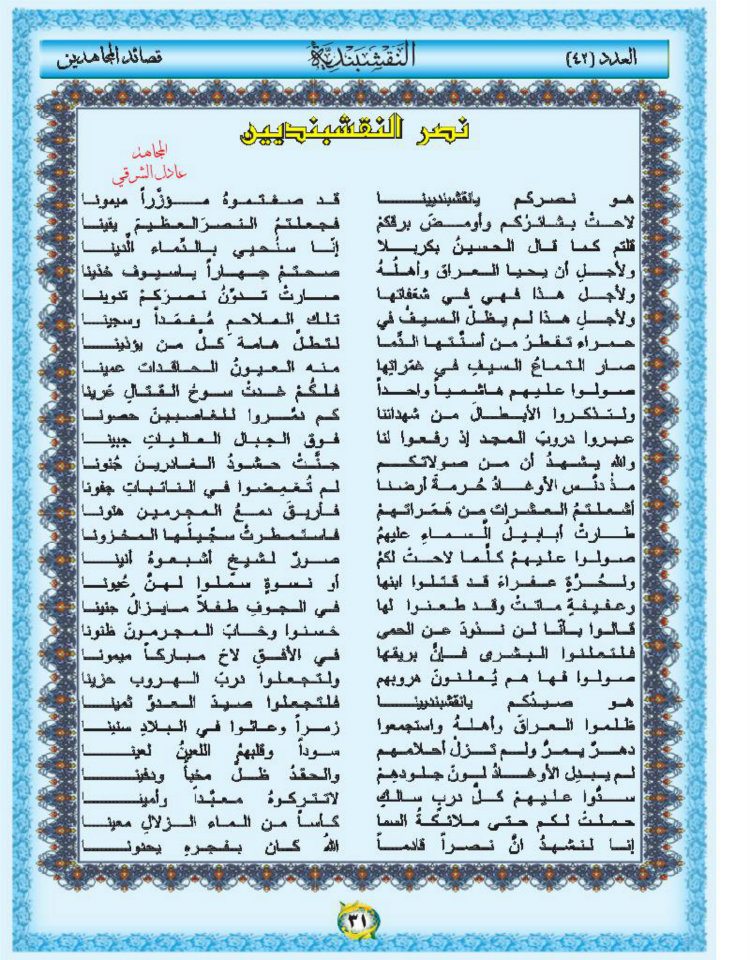 العدد (٤٢) النقشبندية قصائد المجاهدين
نصر النقشبنديين
المجاهد
عادل الشرقي
هو نصركم يانقشبندييـنـا قد صغتموهُ مؤزّراً ميمونا
لاحتْ بشائرُكم وأومضَ برقكمْ فجعلتمُ النصرَ العظيمَ يقينا
قلتم كما قال الحسينُ بكربلا إنّا سنُحيي بالدّماءِ الدّينا
ولأجلِ أن يحيا العراق وأهلُهُ صحتمْ جهاراً ياسيوف خذينا
ولأجلِ هذا فهي في شغفاتها صارتْ تدوّنُ نصركمْ تدوينا
ولأجلِ هذا لم يظلّ السيفُ في تلك الملاحمِ مُغمَداً وسجينا
حمراء تقطرُ من أسنّتها الدّما لتطلّ هامة كلّ من يؤذينا
صار التماعُ السيفِ في غمَراتِها منه العيونُ الحاقدات عمينا
صولوا عليهم هاشمياً واحداً فلكُمْ غدتْ سوحُ القتالِ عَرينا
ولتذكروا الأبطالَ من شهدائنا كم دمّروا للغاصبينَ حصونا
عبروا دروبَ المجد إذ رفعوا لنا فوق الجبال العالياتِ جبينا
والله يشهدُ أن من صولاتكم جنّتْ حشودُ الغادرينَ جُنونا
مذْ دنّس الأوغادُ حُرمةَ أرضنا لم تُغمِضوا في النائباتِ جفونا
أشعلتمُ العشراتِ من هَمَراتهمْ فأُريقَ دمعُ المجرمين هتونا
طارتْ أبابيلُ السماءِ عليهمُ فاستمطرتْ سجّيلَها المخزونا
صولوا عليهمْ كلّما لاحتْ لكمْ صورٌ لشيخٍ أشبعوهُ أنينا
ولحُرّةٍ عفراءَ قد قتلوا ابنها أو نسوةٍ سملوا لهنّ عُيونا
وعفيفةٍ ماتتْ وقد طعنوا لها في الجوفِ طفلاً مايزالُ جنينا
قالوا بأنّا لن نذودَ عن الحمى خسئوا وخابَ المجرمونَ ظنونا
فلتعلنوا البشرى فإنّ بريقها في الأفقِ لاحَ مباركاً ميمونا
صولوا فها هم يُعلنونَ هروبهم ولتجعلوا دربَ الهروبِ حزينا
هو صيدُكم يانقشبندييـنـا فلتجعلوا صيدَ العدوّ ثمينا
ظلموا العراقَ وأهلهُ واستجمعوا زمراً وعاثوا في البلادِ سنينا
دهرٌ يمرُّ ولم تزلْ أحلامهم سوداً وقلبهمُ اللعينُ لعينا
لم يبدلِ الأوغادُ لونَ جلودهمْ والحقدُ ظلّ مخبأً ودفينا
سدّوا عليهمْ كلّ دربٍ سالكٍ لاتتركوهُ معبّداً وأمينا
حملتْ لكم حتى ملائكةُ السما كأساً من الماءِ الزلالِ معينا
إنا لنشهدُ انّ نصراً قادماً اللهُ كان بفجرهِ يحدونا
٣١